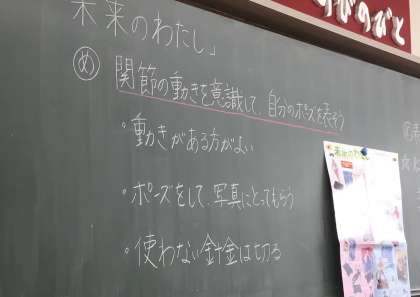 未来のわたし」
め 関節の動きを意識して、自分のポーズを表そう
・動きがある方がよい
・ポーズをして、写真にとってもらう
・使わない針金は切る
未来のわたし
のびと